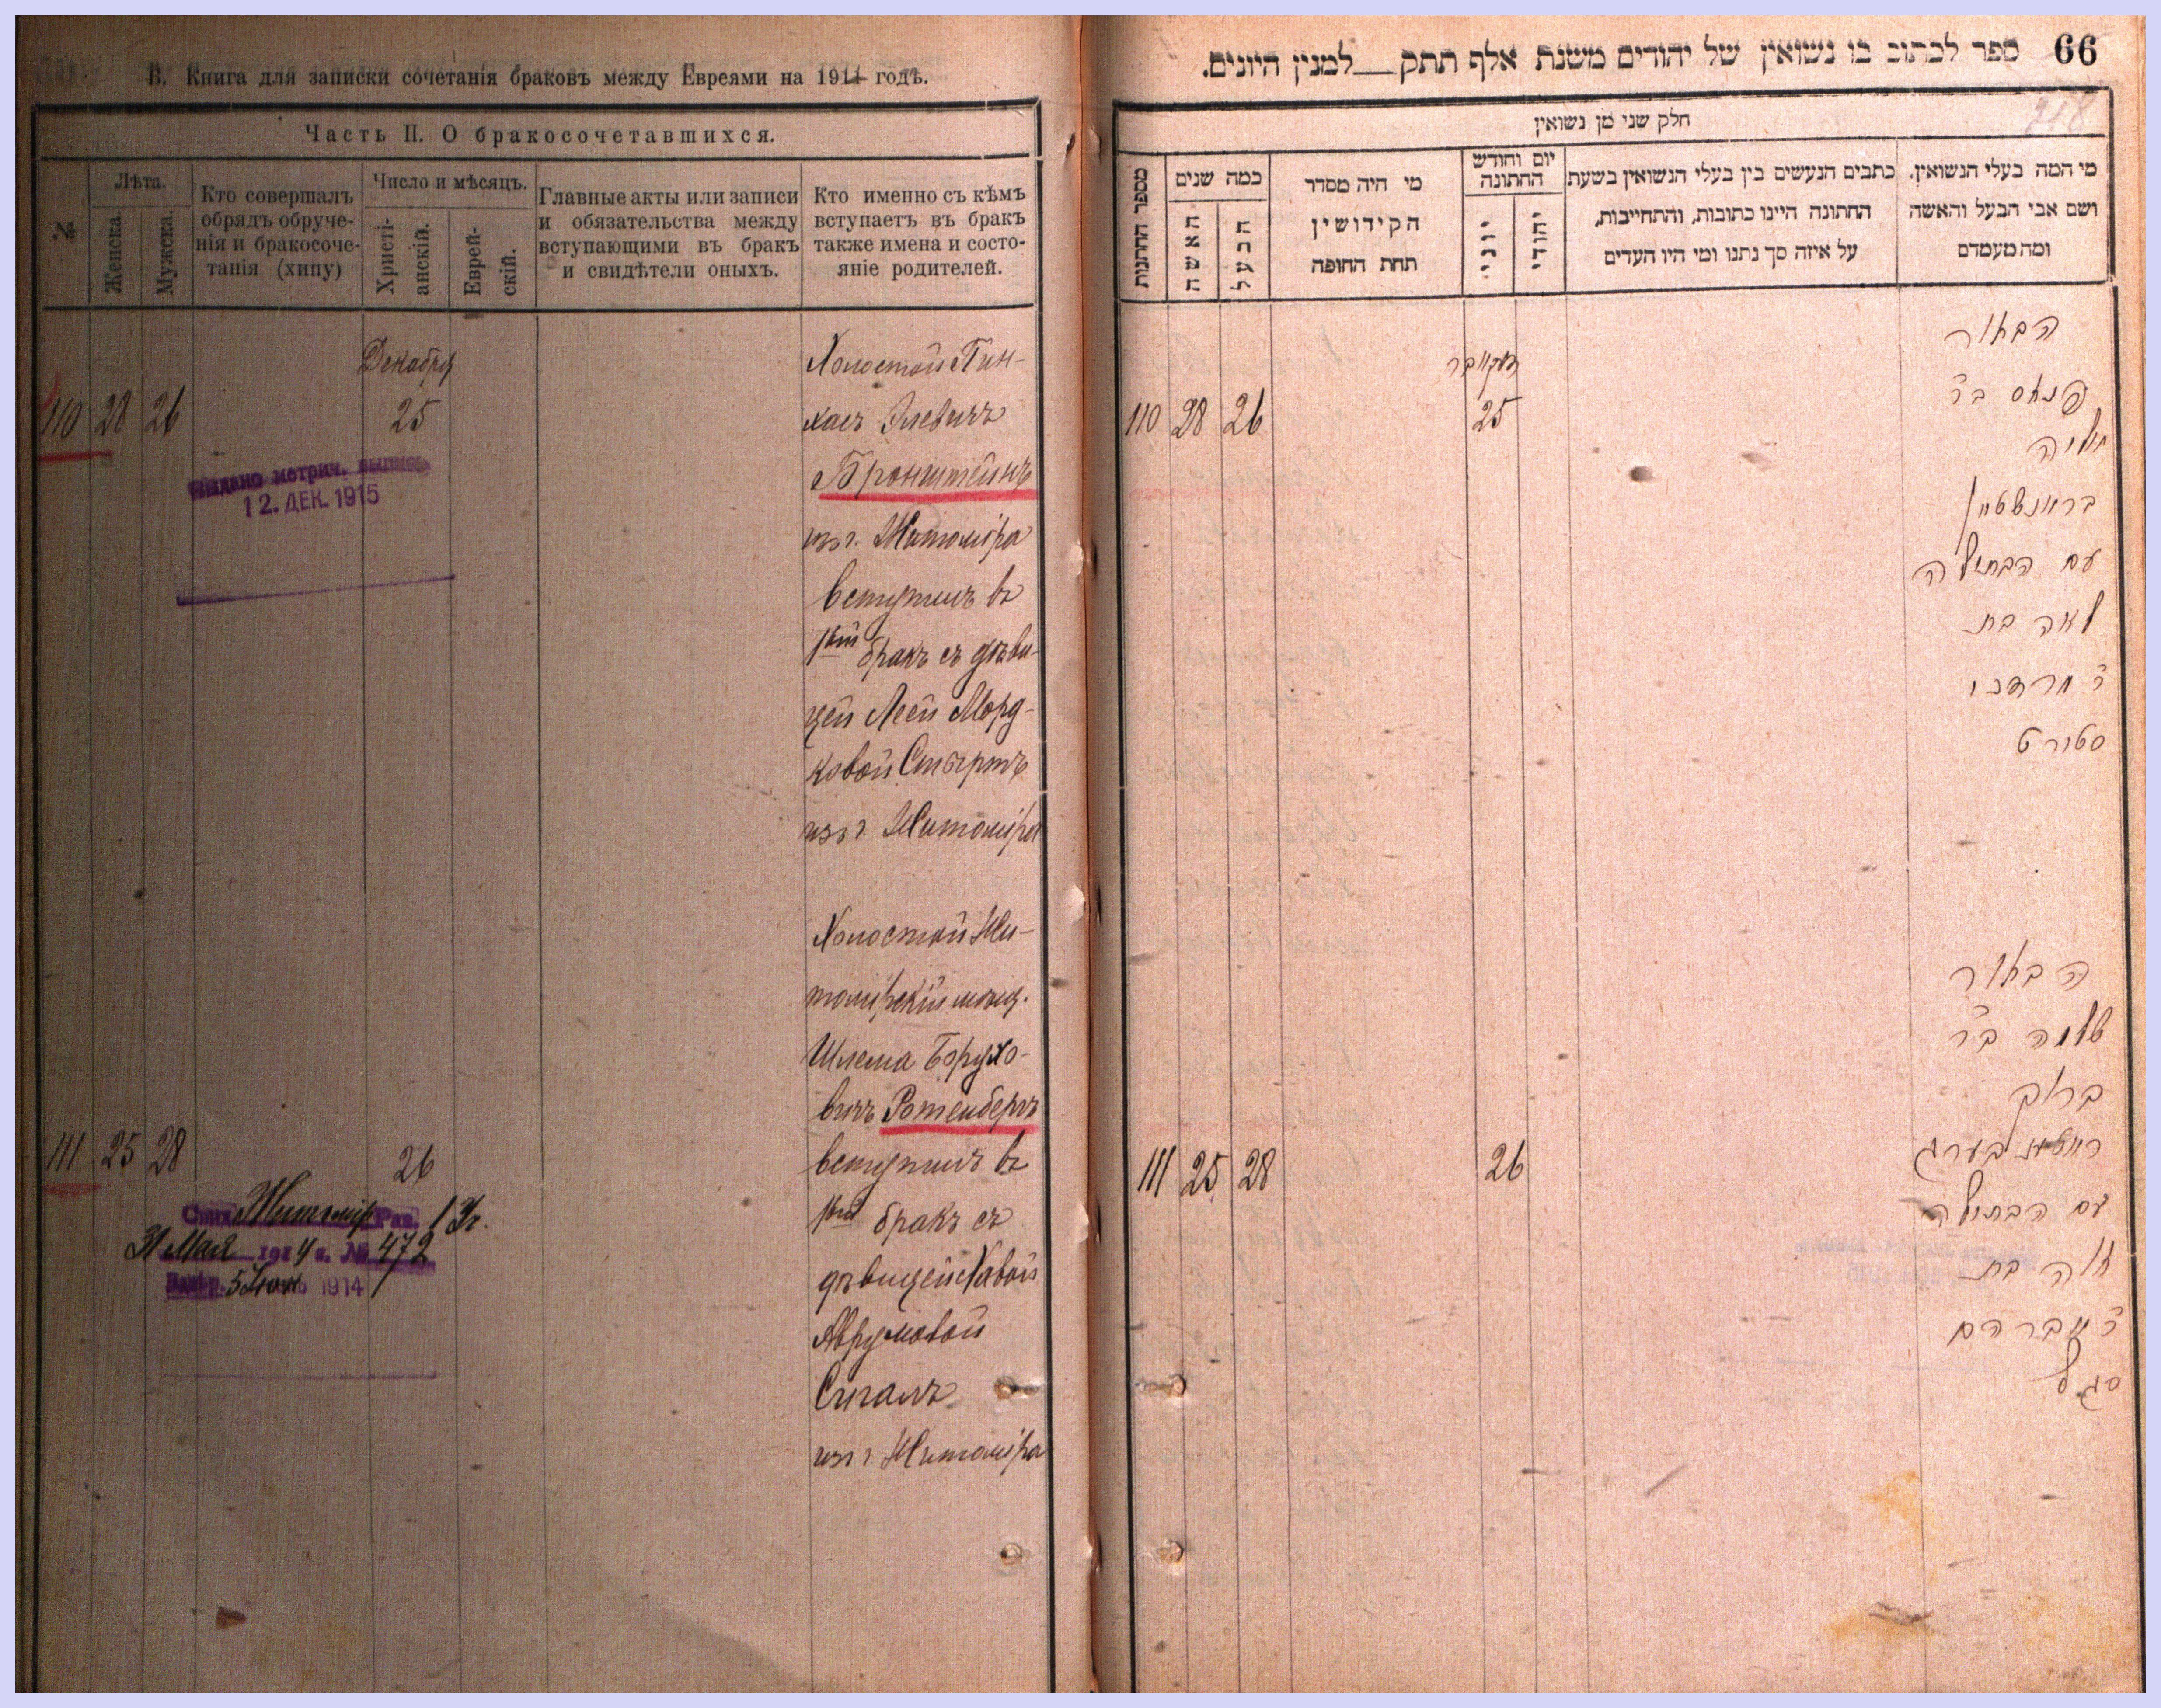 В. Книга для записки сочетанія браковъ между Евреями на 1911 годъ.
Часть II. О бракосочетавшихся.
№
Лѣта.
Женска.
Мужска.
Кто совершалъ
обрядъ обруче-
нія и бракосоче-
танія (хипу)
Число и мѣсяцъ.
Христі-
анскій.
Еврей-
скій.
Главные акты или записи
и обязательства между
вступающими въ бракъ
и свидѣтели оныхъ.
Кто именно съ кѣмъ
вступаетъ въ бракъ
также имена и состо-
яніе родителей.
Декабря
110 28 26 25
Выдано метрич. выпись
12. ДЕК. 1915
Холостой Пин-
хасъ Элевичъ
Бронштейнъ
изъ г. Житоміра
вступилъ въ
1ый бракъ съ дѣви-
цей Леей Морд-
ковой
изъ г. Житоміра
111 25 28 26
Житомір Рав.
31 Мая 1914 г. № 472
5 Іюн 1914
Холостой Жи-
томірскій мѣщ.
Шлема Борухо-
вичъ Ротенбергъ
вступилъ въ
1ый бракъ съ
дѣвицей Хавой
Аврумовой
Сигалъ
изъ г. Житоміра
66 ספר לכתוב בו נשואין של יהודים משנת אלף תתק למנין היונים.
218
חלק שני מן נשואין
מספר החתנות
כמה שנים
האשה
הבעל
מי היה מסדר
הקידושין
תחת החופה
יום וחודש
החתונה
יוני
יהודי
כתבים הנעשים בין בעלי הנשואין בשעת
החתונה היינו כתובות, והתחייבות,
על איזה סך נתנו ומי היו העדים
מי המה בעלי הנשואין.
ושם אבי הבעל והאשה
ומה מעמדם
דעקאבר
110 28 26 25
הבאור
פנחס בר
אליה
בראנשטיין
עם הבתולה
לאה בת
ר מרדכי
סטורט
111 25 28 26
הבאור
שלמה בר
ברוך
ראטענבערג
עם הבתולה
חוה בת
ר אברהם
סגל